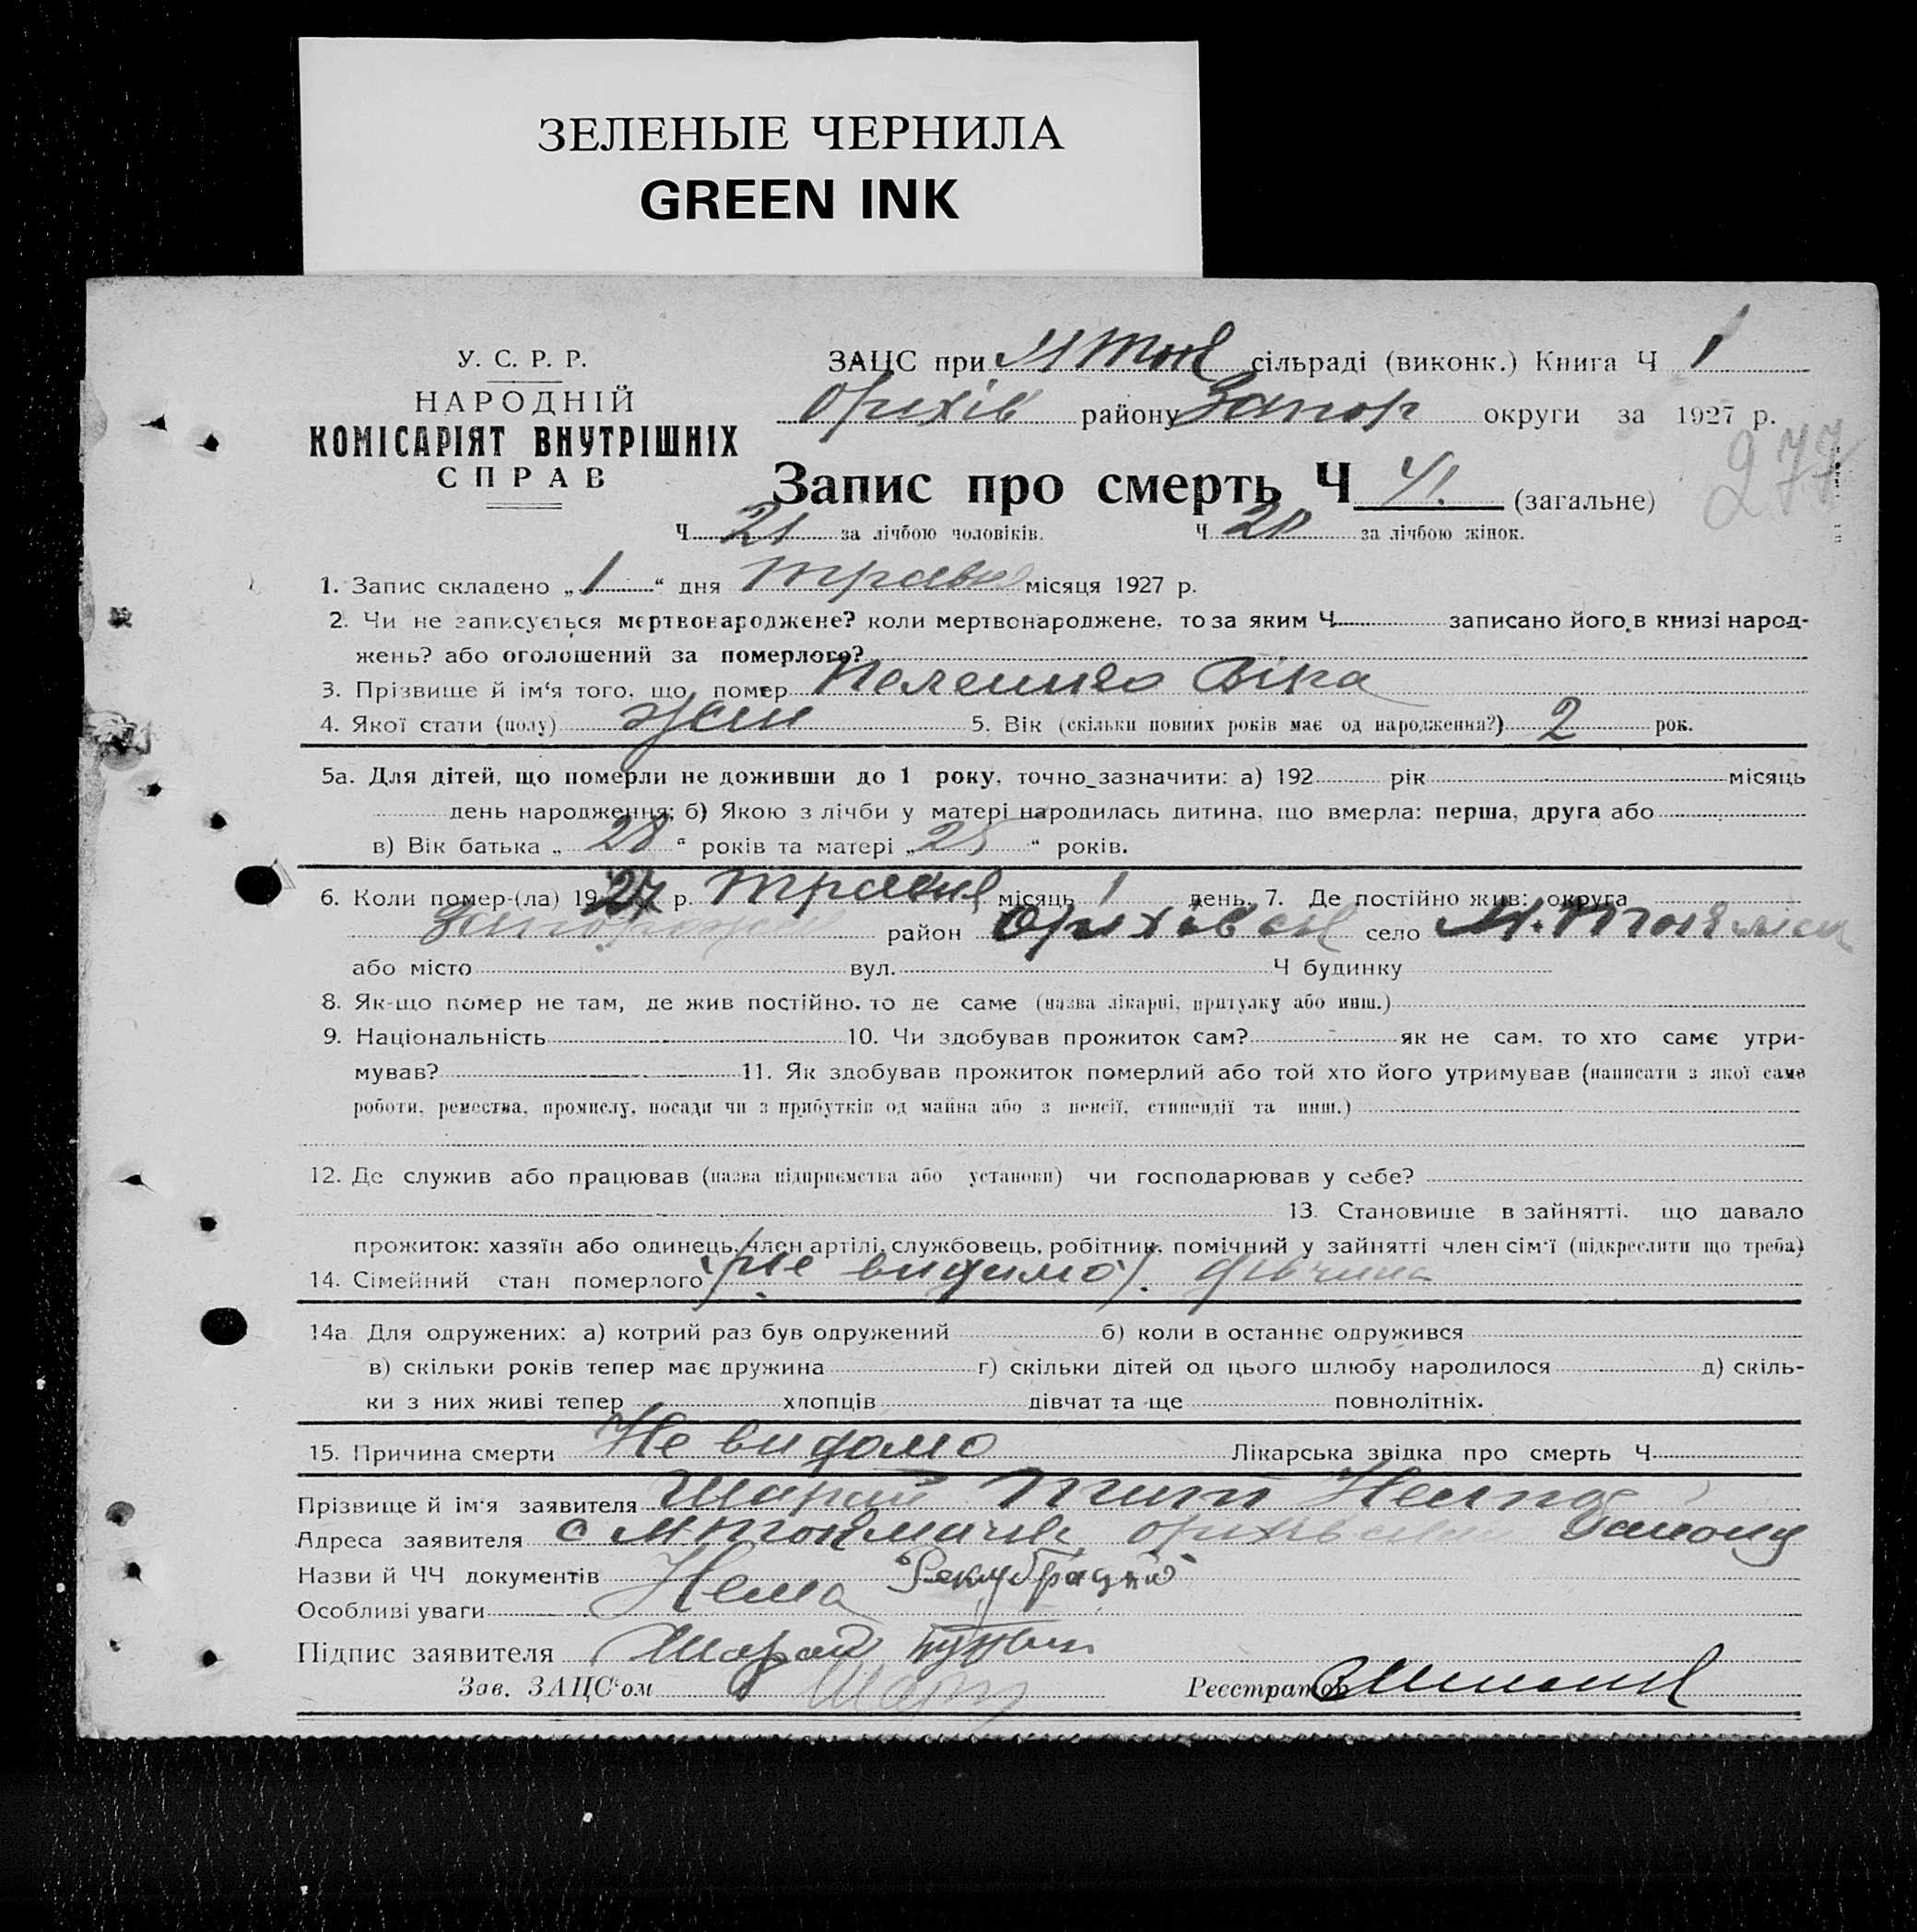 ЗЕЛЕНЫЕ ЧЕРНИЛА
GREEN INK
У. С. Р. Р.
НАРОДНІЙ
КОМІСАРІЯТ ВНУТРІШНІХ
СПРАВ
ЗАЦС при М Ток сільраді (виконк.) Книга Ч 1
Оріхів району Запор округи за 1927 р.
277
Запис про смерть Ч 41. (загальне)
Ч 21 за лічбою чоловіків. Ч 20 за лічбою жінок.
1. Запис складено „1“ дня травня місяця 1927 р.
2. Чи не записується мертвонароджене? коли мертвонароджене, то за яким Ч записано його в книзі народ-
жень? або оголошений за померлого?
3. Прізвище й ім‘я того, що помер Віка
4. Якої стати (полу) жен 5. Вік (скільки повних років має од народження?) 2 рок.
5а. Для дітей, що померли не доживши до 1 року, точно зазначити: а) 192 рік місяць
день народження; б) Якою з лічби у матері народилась дитина, що вмерла: перша, друга або
в) Вік батька „28“ років та матері „25“ років.
6. Коли помер-(ла) 1927 р. травня місяць 1 день. 7. Де постійно жив: округа
Запорожськ район Оріхівськ село М. Ток
або місто вул. Ч будинку
8. Як-що помер не там, де жив постійно, то де саме (назва лікарні, притулку або инш.)
9. Національність 10. Чи здобував прожиток сам? як не сам, то хто саме утри-
мував? 11. Як здобував прожиток померлий або той хто його утримував (написати з якої саме
роботи, ремества, промислу, посади чи з прибутків од майна або з пенсії, стипендії та инш.)
12. Де служив або працював (назва підприємства або установи) чи господарював у себе?
13. Становище в зайнятті, що давало
прожиток: хазяїн або одинець, член артілі, службовець, робітник, помічний у зайнятті член сім‘ї (підкреслити що треба)
14. Сімейний стан померлого (не видимо). дівчина
14а. Для одружених: а) котрий раз був одружений б) коли в останнє одружився
в) скільки років тепер має дружина г) скільки дітей од цього шлюбу народилося д) скіль-
ки з них живі тепер хлопців дівчат та ще повнолітніх.
15. Причина смерти Не видомо Лікарська звідка про смерть Ч
Прізвище й ім‘я заявителя Шарай
Адреса заявителя с М Токмачка Оріхівськ району
Назви й ЧЧ документів Нема
Особливі уваги
Підпис заявителя Шарай
Зав. ЗАЦС‘ом
Реєстратор